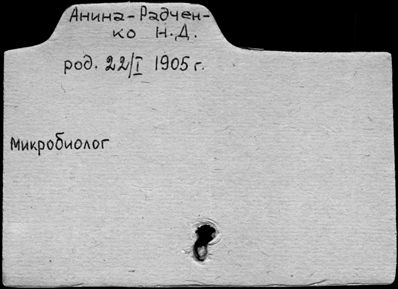 Анина-Радчен-
ко Н.Д.
род. 22/I 1905 г.
Микробиолог